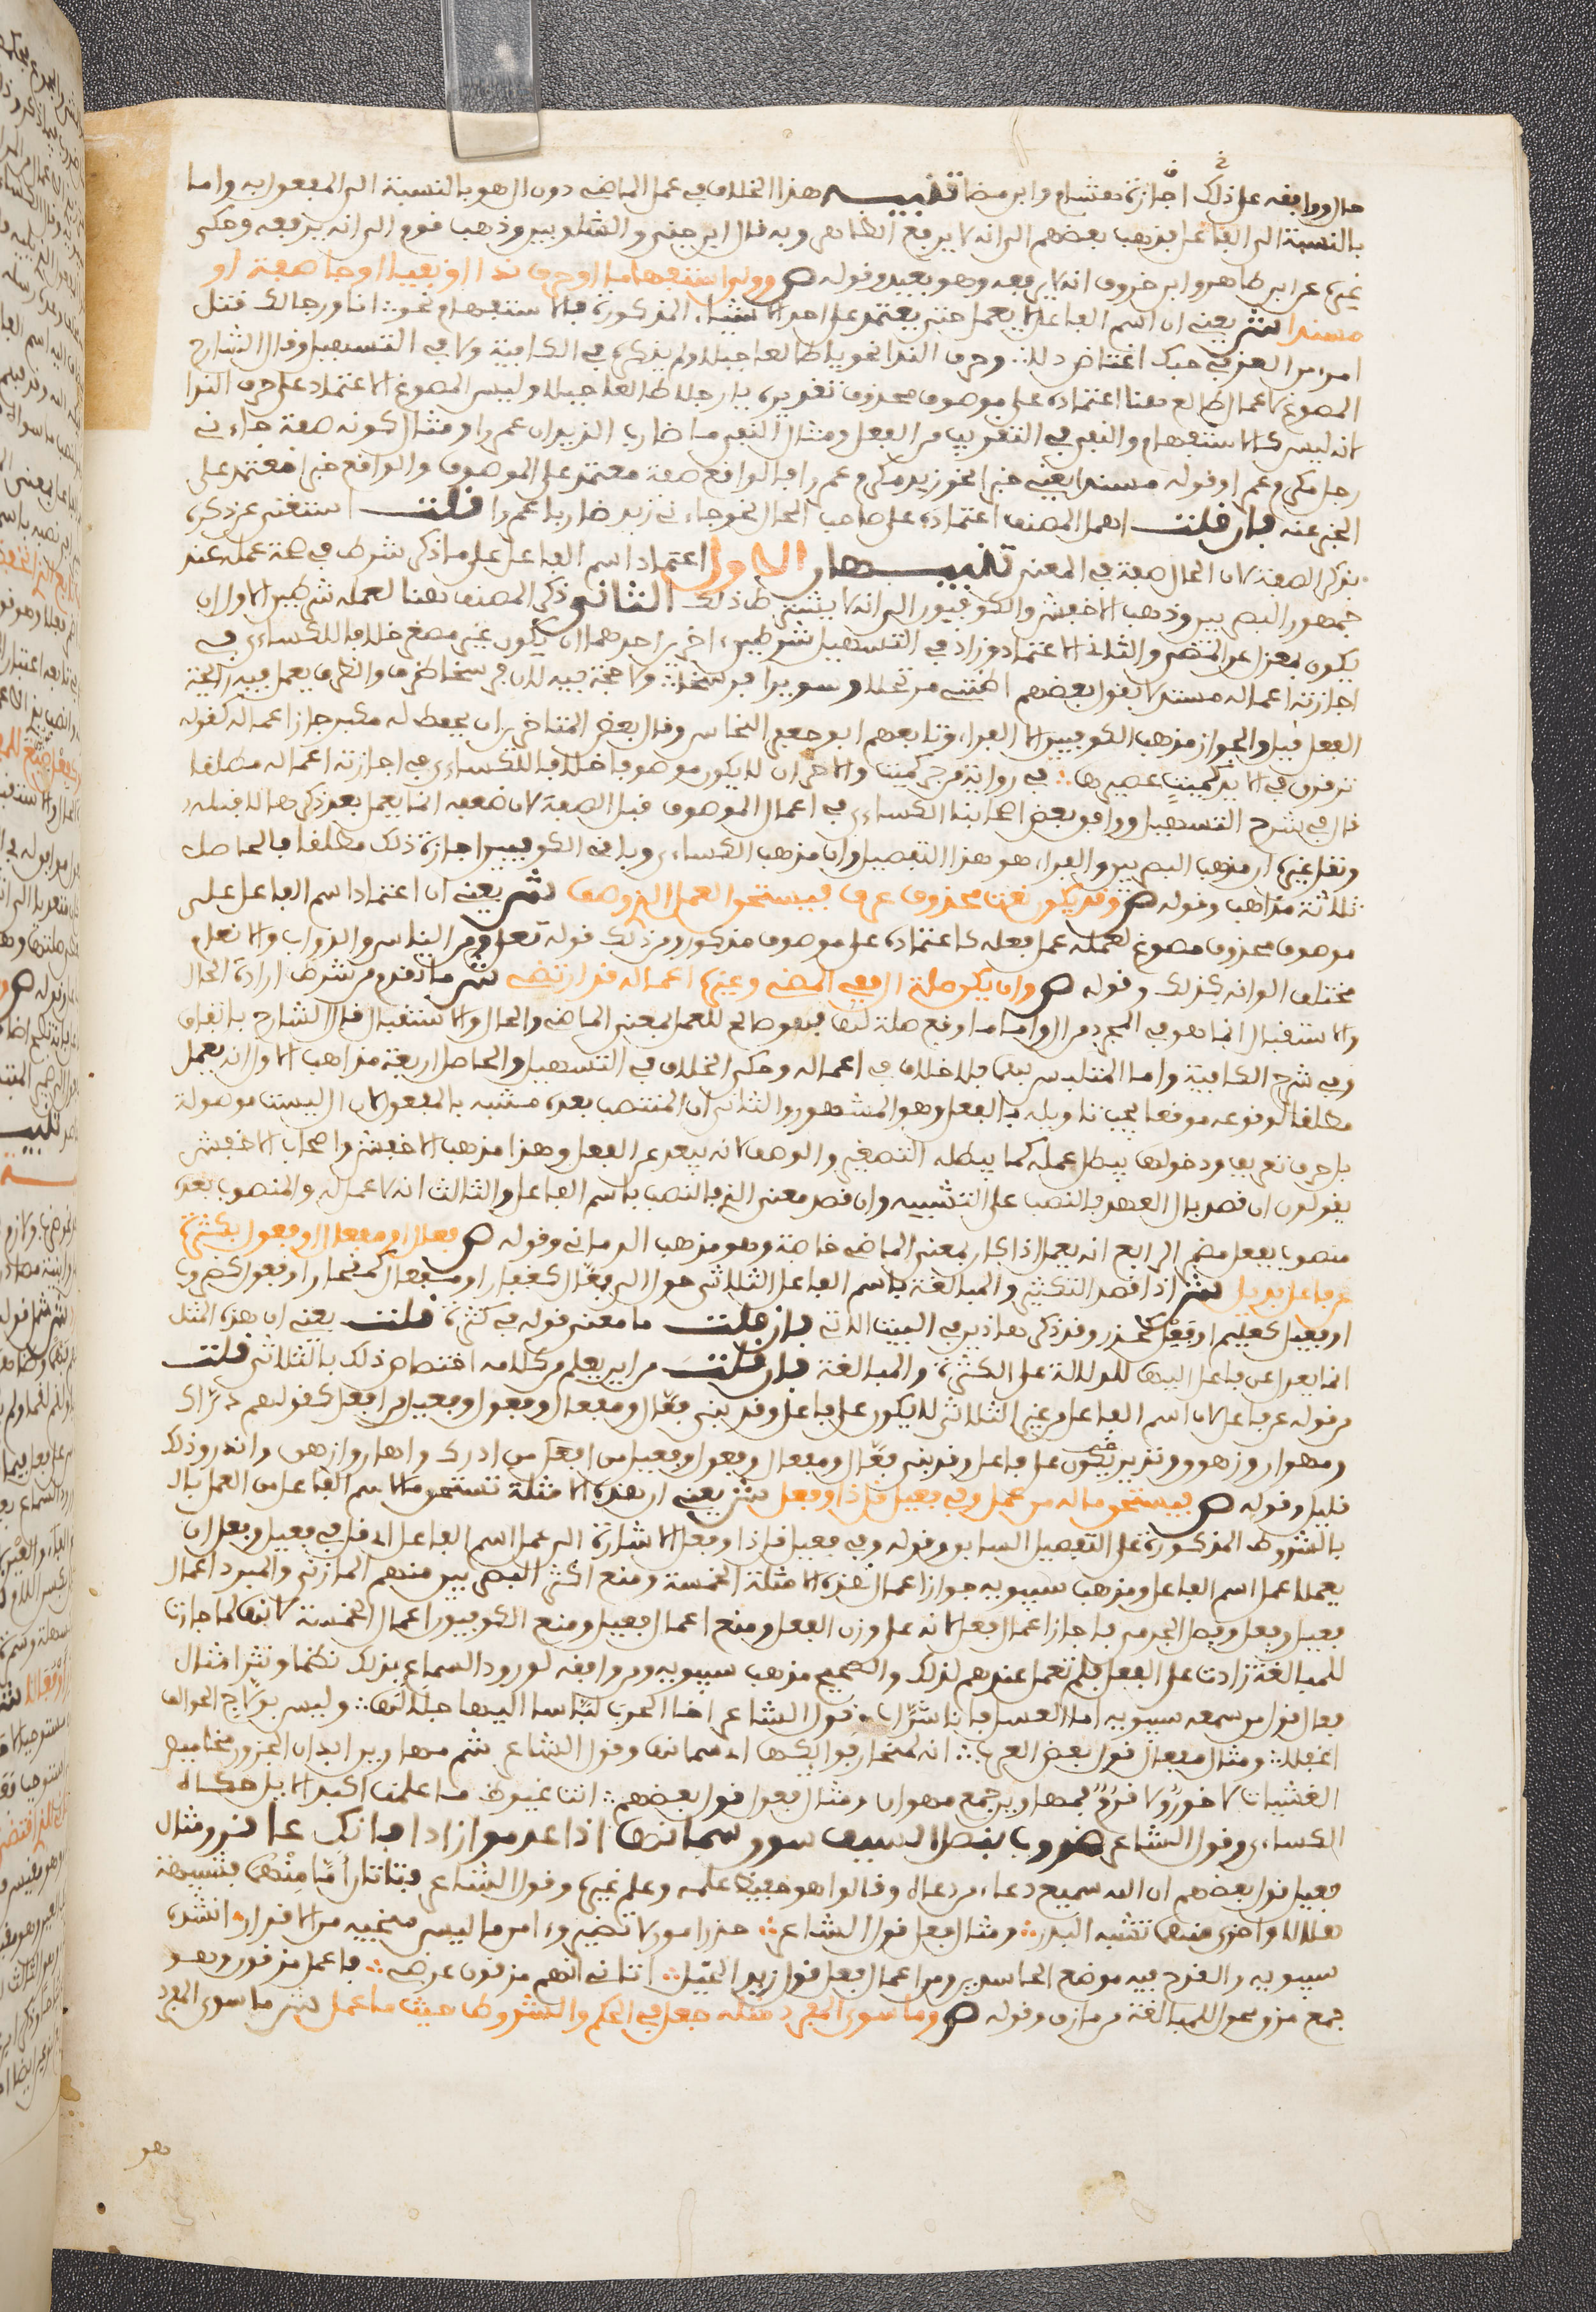 حال ووافقه على ذلك اجازة هشام وابن مضا تنبيه هذا الخلاف في عمل الماضي دون ال هو بالنسبة الى المفعول به واما
بالنسبة الى الفاعل فذهب بعضهم الى انه لا يرفع الظاهر وبه قال ابن جني والشلوبين وذهب قوم الى انه يرفعه وحكى
غيره عن ابن طاهر وابن خروف انه لا يرفعه وهو بعيد وقوله ص وولي استفهاما او حرف ندا او نفيا او جا صفة او
مسندا ش يعني ان اسم الفاعل لا يعمل حتى يعتمد على احد الاشياء المذكورة فالاستفهام نحو انا ورجالك قتل
امرئ من العز في حبك اعتاض ذلا وحرف الندا نحو يا طالعا جبلا ولم يذكره في الكافية ولا في التسهيل وقال الشارح
المسوغ لاعمال طالع هنا اعتماده على موصوف محذوف تقديره يا رجلا طالعا جبلا وليس المسوغ الاعتماد على حرف الندا
لانه ليس كالاستفهام والنفي في التقريب من الفعل ومثال النفي ما ضارب الزيدان عمرا ومثال كونه صفة جاءني
رجل مكرم عمرا وقوله مسندا يعني خبرا نحو زيد مكرم عمرا فالواقع صفة معتمد على الموصوف والواقع خبرا معتمد على
المخبر عنه فان قلت اهمل المصنف اعتماده على صاحب الحال نحو جاءني زيد ضاربا عمرا قلت استغنى عن ذكره
بذكر الصفة لان الحال صفة في المعنى تنبيهان الاول اعتماد اسم الفاعل على ما ذكر شرط في صحة عمله عند
جمهور البصريين وذهب الاخفش والكوفيون الى انه لا يشترط ذلك الثاني ذكر المصنف هنا لعمله شرطين الاول ان
يكون بمعزل عن المضي والثاني الاعتماد وزاد في التسهيل شرطين اخرين احدهما ان يكون غير مصغر خلافا للكسائي في
اجازته اعماله مستدلا بقول بعضهم اظنني مرتحلا وسويرا فرسخا ولا حجة فيه لان فرسخا ظرف والظرف يعمل فيه رائحة
الفعل قيل والجواز مذهب الكوفيين الا الفراء وتابعهم ابو جعفر النحاس وقال بعض المتاخرين ان لم يحفظ له مكبر جاز اعماله كقوله
ترقرق في الايدي كميت عصيرها في رواية من جر كميت والاخر ان لا يكون موصوفا خلافا للكسائي في اجازته اعماله مطلقا
قال في شرح التسهيل ووافق بعض اصحابنا الكسائي في اعمال الموصوف قبل الصفة لان ضعفه انما يعمل بعد ذكرها لا قبله
ونقل غيره ان مذهب البصريين والفراء هو هذا التفصيل وان مذهب الكسائي وباقي الكوفيين اجازة ذلك مطلقا فالحاصل
ثلاثة مذاهب وقوله ص وقد يكون نعت محذوف عرف فيستحق العمل الذي وصف ش يعني ان اعتماد اسم الفاعل على
موصوف محذوف مسوغ لعمله عمل فعله كاعتماده على موصوف مذكور ومن ذلك قوله تعلى ومن الناس والدواب والانعام
مختلف الوانه كذلك وقوله ص وان يكن صلة ال ففي المضي وغيره اعماله قد ارتضي ش ما تقدم من شرط ارادة الحال
والاستقبال انما هو في المجرد من ال واما ما وقع صلة لها فهو صالح للعمل بمعنى الماضي والحال والاستقبال قال الشارح باتفاق
وفي شرح الكافية واما المتلبس بها فلا خلاف في اعماله وحكى الخلاف في التسهيل والحاصل اربعة مذاهب الاول انه يعمل
مطلقا لوقوعه موقعا يجب تاويله بالفعل وهو المشهور والثاني ان المنتصب بعده مشبه بالمفعول لان ال ليست موصولة
بل حرف تعريف ودخولها يبطل عمله كما يبطله التصغير والوصف لانه يبعد عن الفعل وهذا مذهب الاخفش واصحاب الاخفش
يقولون ان قصد بال العهد فالنصب على التشبيه وان قصد معنى الذي فالنصب باسم الفاعل والثالث انه لا عمل له والمنصوب بعده
منصوب بفعل مضمر الرابع انه يعمل اذا كان بمعنى الماضي خاصة وهو مذهب الرماني وقوله ص فعال او مفعال او فعول بكثرة
عن فاعل بديل ش اذا قصد التكثير والمبالغة باسم الفاعل الثلاثي حول الى فعال كغفار او مفعال كمنحار او فعول كضروب
او فعيل كعليم او فعل كحذر وقد ذكر هاذين في البيت الاتي فان قلت ما معنى قوله في كثرة قلت يعني ان هذه المثل
انما يعدل عن فاعل اليها للدلالة على الكثرة والمبالغة فان قلت من اين يعلم من كلامه اختصاص ذلك بالثلاثي قلت
من قوله عن فاعل لان اسم الفاعل من غير الثلاثي لا يكون على فاعل وقد بني فعال ومفعال وفعول وفعيل من افعل كقولهم دراك
ومهوان وزهوق ونذير يكون على فاعل وقد بني فعال ومفعال وفعول وفعيل من افعل من ادرك واهان وازهق وانذر وذلك
قليل وقوله ص فيستحق ماله من عمل وفي فعيل قل ذا وفعل ش يعني ان هذه الامثلة تستحق ما لاسم الفاعل من العمل بال
بالشروط المذكورة على التفصيل السابق وقوله وفي فعيل قل ذا وفعل الاشارة الى عمل اسم الفاعل اي قل في فعيل وفعل ان
يعملا عمل اسم الفاعل ومذهب سيبويه جواز اعمال هذه الامثلة الخمسة ومنع اكثر البصريين منهم المازني والمبرد اعمال
فعيل وفعل وفصل الجرمي فاجاز اعمال فعل لانه على وزن الفعل ومنع اعمال فعيل ومنع الكوفيون اعمال الخمسة لانها لما جازت
للمبالغة زادت على الفعل فلم تعمل عندهم لذلك والصحيح مذهب سيبويه ومن وافقه لورود السماع بذلك نظما ونثرا مثال
فعال قول من سمعه سيبويه اما العسل فانا شراب قول الشاعر اخا الحرب لباسا اليها جلالها وليس بولاج الخوالف
اعقلا ومثال مفعال قول بعض العرب انه لمنحار بوائكها اي سمانها وقول الشاعر شم مهاوين ابدان الجزور مخاميص
العشيات لا خور ولا قزم فمهاوين جمع مهوان ومثال فعول قول بعضهم انت غيوظ ما علمت اكباد الابل حكاه
الكسائي وقول الشاعر ضروب بنصل السيف سوق سمانها اذا عدموا زادا فانك عاقر ومثال
فعيل قول بعضهم ان الله سميع دعاء من دعاه وقالوا هو حفيظ علمه وعلم غيره وقول الشاعر فتاتان اما منهما فشبيهة
هلالا واخرى منهما تشبه البدر ومثال فعل قول الشاعر حذر امورا لا تضير وءامن ما ليس منجيه من الاقدار انشده
سيبويه والقدح فيه موضع الحاسدين ومن اعمال فعل قول زيد الخيل اتاني انهم مزقون عرضي فاعمل مزقون وهو
جمع مزق محول للمبالغة من مازق وقوله ص وما سوى المفرد مثله جعل في الحكم والشروط حيث ما عمل ش ما سوى المفرد
هو